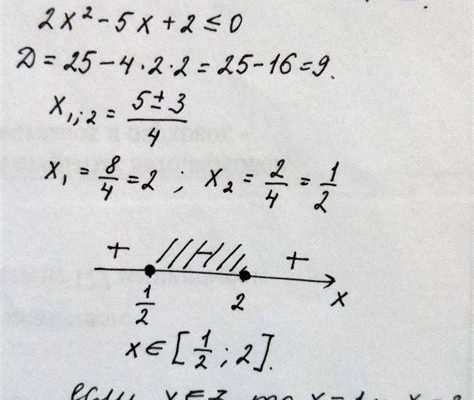 2x² - 5x + 2 ≤ 0
D = 25 - 4·2·2 = 25 - 16 = 9.
x₁;₂ = (5 ± 3)/4
x₁ = 8/4 = 2 , x₂ = 2/4 = 1/2
+ +
1/2 2 x
x ∈ [1/2 ; 2].
x ∈ Z, то x = 1